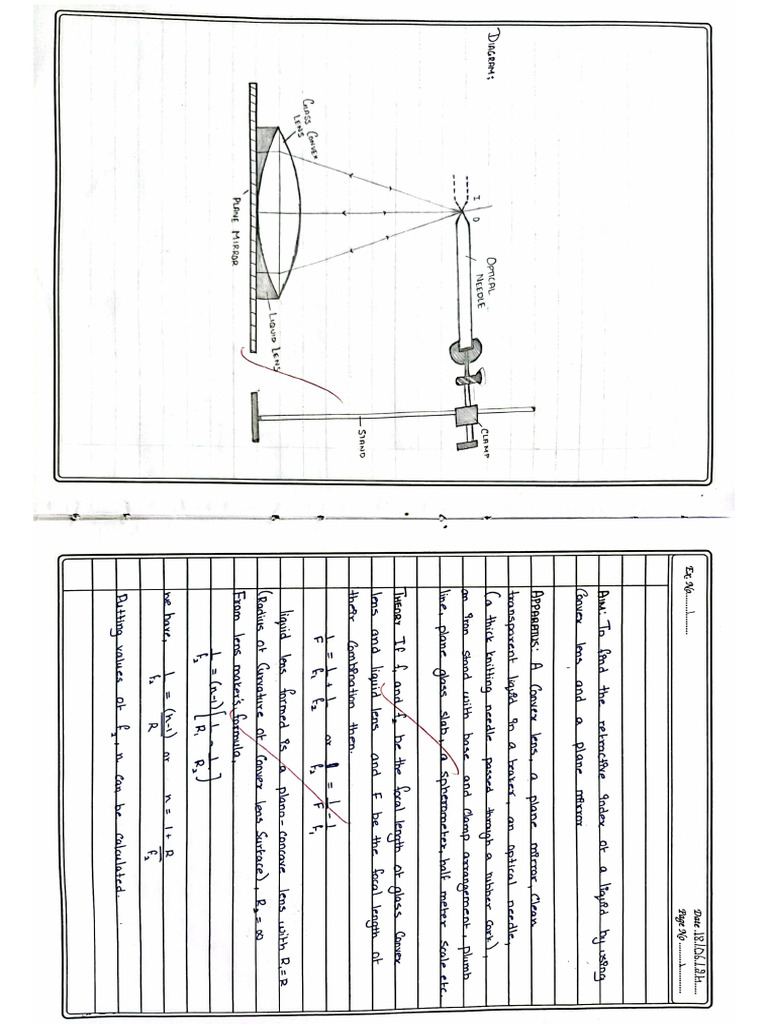 DIAGRAM:
I
O
OPTICAL
NEEDLE
CLAMP
GLASS CONVEX
LENS
STAND
LIQUID LENS
PLANE MIRROR
Ex. No.
Date 18/06/24
Page No
AIM: To find the refractive index of a liquid by using
Convex lens and a plane mirror
APPARATUS: A Convex lens, a plane mirror, Clean
transparent liquid in a beaker, an optical needle,
(a thick knitting needle passed through a rubber cork),
an iron stand with base and clamp arrangement, plumb
line, plane glass slab, a spherometer, half meter scale etc.
THEORY If f₁ and f₂ be the focal length of glass Convex
lens and liquid lens and F be the focal length of
their combination then.
1/F = 1/f₁ + 1/f₂ or 1/f₂ = 1/F - 1/f₁
liquid lens formed is a plano-concave lens with R₁=R
(Radius of Curvature of Convex lens Surface), R₂=∞
From lens maker's formula,
1/f₂ = (n-1) [1/R₁ - 1/R₂]
we have, 1/f₂ = (n-1)/R or n = 1 + R/f₂
Putting values of f₂, n can be calculated.